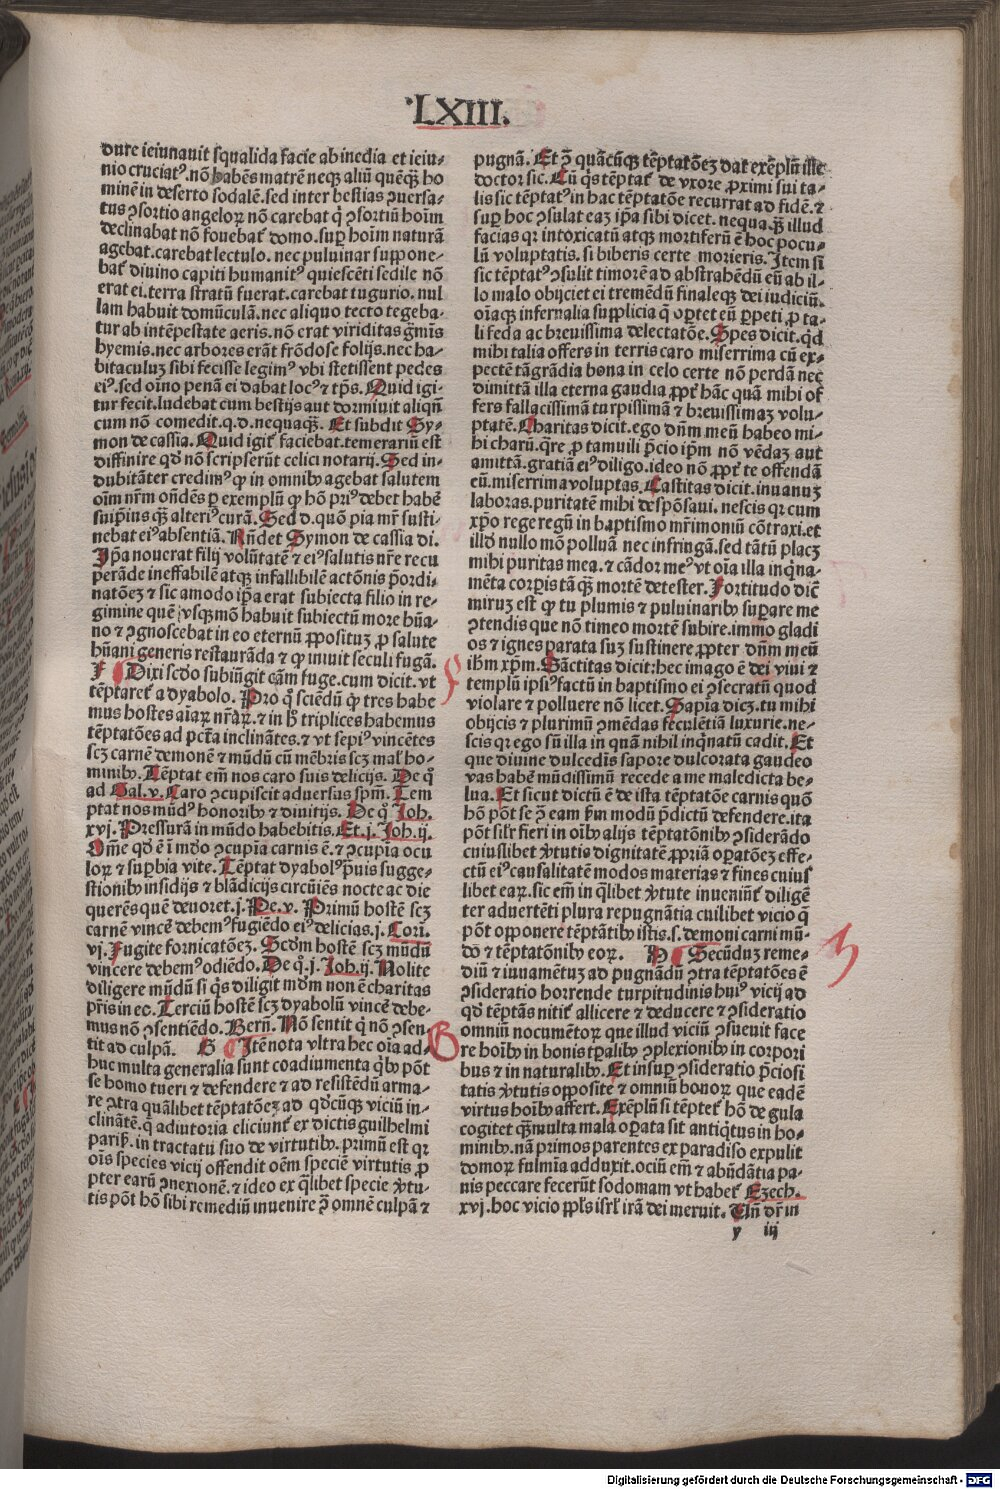 LXIII.
dure ieiunauit squalida facie ab inedia et ieiu-
nio cruciatꝰ. nõ habẽs matrẽ neqꝫ aliũ quẽqꝫ ho
minẽ in deserto sodalẽ. sed inter bestias ꝯuersa-
tus ꝯsortio angeloꝝ nõ carebat q̃ ꝯsortiũ hoĩm
declinabat nõ fouebat̃ domo. sup̱ hoĩm naturã
agebat. carebat lectulo. nec puluinar suppone-
bat̃ diuino capiti humanitꝰ quiescẽti sedile nõ
erat ei. terra stratũ fuerat. carebat tugurio. nul
lam habuit domũculã. nec aliquo tecto tegeba-
tur ab intẽpestate aeris. nõ erat viriditas g̃mĩs
hyemis. nec arbores erãt frõdose folijs. nec ha-
bitaculuꝫ sibi fecisse legimꝰ vbi stetissent pedes
eiꝰ. sed oĩno penã ei dabat locꝰ ⁊ tp̃s. Quid igi
tur fecit. ludebat cum bestijs aut dormiuit aliqñ
cum nõ comedit. q.d. nequaqꝫ. Et subdit Sy-
mon de cassia. Quid igit̃ faciebat. temerariũ est
diffinire qđ nõ scripserũt celici notarij. Sed in-
dubitãter credimꝰ ꝙ in omnibꝰ agebat salutem
oĩm nr̃m oñdẽs p̱ exemplũ ꝙ hõ priꝰ debet habẽ
sui p̱ius qꝫ alteriꝰ curã. Sed d. quõ pia mr̃ susti-
nebat eiꝰ absentiã. Rñdet Symon de cassia di.
Ip̃a nouerat filij volũtatẽ ⁊ eiꝰ salutis nr̃e recu
perãde ineffabilẽ atqꝫ infallibilẽ actõnis p̃ordi-
natõeꝫ ⁊ sic amodo ip̃a erat subiecta filio in re-
gimine quẽ vsqꝫmõ habuit subiectũ more hũa-
no ⁊ ꝯgnoscebat in eo eternũ ꝓposituꝫ ꝓ salute
hũani generis restaurãda ⁊ ꝙ iniuit seculi fugã.
F ¶ Dixi scđo subiũgit cãm fuge. cum dicit. vt
tẽptaret̃ a dyabolo. Pro q̊ sciẽdũ ꝙ tres habe
mus hostes aĩaꝝ nr̃aꝝ. ⁊ in ħ triplices habemus
tẽptatões ad pctã inclinãtes. ⁊ vt sepiꝰ vincẽtes
scꝫ carnẽ demonẽ ⁊ mũdũ cũ mẽbris scꝫ mal̃ ho-
minibꝰ. Tẽptat em̃ nos caro suis delicijs. De q̊
ad Gal. v. Caro ꝯcupiscit aduersus sp̃m. Tem
ptat nos mũdꝰ honoribꝰ ⁊ diuitijs. De q̊ Joh.
xvj. Pressurã in mũdo habebitis. Et. j. Joh. ij.
Om̃e qđ ẽ ĩ mũdo ꝯcupĩa carnis ẽ. ⁊ ꝯcupĩa ocu
loꝝ ⁊ sup̱bia vite. Tẽptat dyabolꝰ p̱uis sugge-
stionibꝰ insidijs ⁊ blãdicijs circũiẽs nocte ac die
querẽs quẽ deuoret. j. Pe. v. Primũ hostẽ scꝫ
carnẽ vincẽ debemꝰ fugiẽdo eiꝰ delicias. j. Cori.
vj. Fugite fornicatõeꝫ. Scđm hostẽ scꝫ mũdũ
vincere debemꝰ odiẽdo. De q̊. j. Joh. ij. Nolite
diligere mũdũ si q̃s diligit mđm non ẽ charitas
pr̃is in eo. Terciũ hostẽ scꝫ dyabolũ vincẽ debe-
mus nõ ꝯsentiẽdo. Berñ. Nõ sentit q̃ nõ ꝯsen
tit ad culpã. G ¶ Itẽ nota vltra hec oĩa ad-
huc multa generalia sunt coadiumenta q̃bꝰ põt
se homo tueri ⁊ defendere ⁊ ad resistẽdũ arma-
re ꝯtra quãlibet tẽptatõeꝫ ad qđcũqꝫ viciũ in-
clinãtẽ. q̃ adiutoria eliciunt̃ ex dictis guilhelmi
parisi. in tractatu suo de virtutibꝰ. primũ est qꝛ
oĩs species vicij offendit oẽm speciẽ virtutis ꝓ
pter earũ ꝯnexionẽ. ⁊ ideo ex q̃libet specie v̾tu-
tis põt hõ sibi remediũ inuenire ꝯ̃ omnẽ culpã ⁊
pugnã. Et ꝯ̃ quãcũqꝫ tẽptatõeꝫ dat exẽplũ ille
doctor sic. Cũ q̃s tẽptat̃ de vxore ꝓximi sui ta-
lis sic tẽptatꝰ in hac tẽptatõe recurrat ad fidẽ. ⁊
sup̱ hoc ꝯsulat eaꝫ ip̃a sibi dicet. nequaqꝫ illud
facias qꝛ intoxicatũ atqꝫ mortiferũ ẽ hoc pocu-
lũ voluptatis. si biberis certe morieris. Item si
sic tẽptatꝰ ꝯsulit timorẽ ad abstrahẽdũ eũ ab il-
lo malo obijciet ei tremẽdũ finaleqꝫ dei iudiciũ.
oĩaqꝫ infernalia supplicia q̃ oportet eũ p̱peti ꝓ ta-
li feda ac breuissima delectatõe. Spes dicit. qđ
mihi talia offers in terris caro miserrima cũ ex-
pectẽ tã grãdia bona in celo certe nõ perdã nec
dimittã illa eterna gaudia ꝓpt̃ hãc quã mihi of
fers fallacissimã turpissimã ⁊ breuissimaꝫ volu-
ptatẽ. Charitas dicit. ego dñm meũ habeo mi-
hi charũ. q̃re ꝓ tam uili p̃cio ip̃m nõ vẽdaꝫ aut
amittã. gratiã eiꝰ diligo. ideo nõ ꝓpt̃ te offendã
eũ. miserrima voluptas. Castitas dicit. in uanuꝫ
laboras. puritatẽ mihi despõsaui. nescis qꝛ cum
xp̃o rege regũ in baptismo mr̃imoniũ cõtraxi. et
illđ nullo mõ polluã nec infringã. sed tãtũ placꝫ
mihi puritas mea. ⁊ cãdor meꝰ vt oĩa illa inq̃na-
mẽta corp̱is tãqꝫ mortẽ detester. Fortitudo dic̃
miruꝫ est ꝙ tu plumis ⁊ puluinaribꝰ sup̱are me
ꝯtendis que nõ timeo mortẽ subire. immo gladi
os ⁊ ignes parata suꝫ sustinere ꝓpter dñm meũ
ihm̃ xp̃m. Sãctitas dicit: hec imago ẽ dei viui ⁊
templũ ipsiꝰ factũ in baptismo ei ꝯsecratũ quod
violare ⁊ polluere nõ licet. Sapĩa dicꝫ. tu mihi
obijcis ⁊ plurimũ ꝯmẽdas feculẽtiã luxurie. ne-
scis qꝛ ego sũ illa in quã nihil inq̃natũ cadit. Et
que diuine dulcedĩs sapore dulcorata gaudeo
vas habẽ mũdissimũ recede a me maledicta be-
lua. Et sicut dictũ ẽ de ista tẽptatõe carnis quõ
hõ põt se ꝯ̃ eam ẜm modũ p̃dictũ defendere. ita
põt silr̃ fieri in oĩbꝰ alijs tẽptatõnibꝰ ꝯsiderãdo
cuiuslibet v̾tutis dignitatẽ ꝓpriã op̱atõeꝫ effe-
ctũ eiꝰ causalitatẽ modos materias ⁊ fines cuius
libet eaꝝ. sic em̃ in q̃libet v̾tute inuenint̃ diligẽ
ter aduertẽti plura repugnãtia cuilibet vicio q̃
põt opponere tẽptãtibꝰ istis. s. demoni carni mũ-
do ⁊ tẽptatõnibꝰ eoꝝ. H ¶ Secũduꝫ reme-
diũ ⁊ iuuamẽtuꝫ ad pugnãdũ ꝯtra tẽptatões ẽ
ꝯsideratio horrende turpitudinis huiꝰ vicij ad
qđ tẽptãs nitit̃ allicere ⁊ deducere ⁊ ꝯsideratio
omniũ nocumẽtoꝝ que illud viciũ ꝯsueuit face
re hoĩbꝰ in bonis tp̱alibꝰ ꝯplexionibꝰ in corpori
bus ⁊ in naturalibꝰ. Et insup̱ ꝯsideratio p̃ciosi
tatis v̾tutis opposite ⁊ omniũ honoꝝ que eadẽ
virtus hoĩbꝰ affert. Exẽplũ si tẽptet̃ hõ de gula
cogitet qꝫ multa mala op̱ata sit antiq̃tus in ho-
minibꝰ. nã primos parentes ex paradiso expulit
domoꝝ fulmĩa adduxit. ociũ em̃ ⁊ abũdãtia pa-
nis peccare fecerũt sodomam vt habet̃ Ezech.
xvj. hoc vicio ppl̃s isrl̃ irã dei meruit. Vñ dr̃ in
y iij
G
3
Digitalisierung gefördert durch die Deutsche Forschungsgemeinschaft - DFG